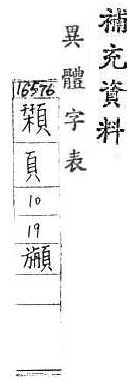 補充資料
異體字表
16576
頁
10
19